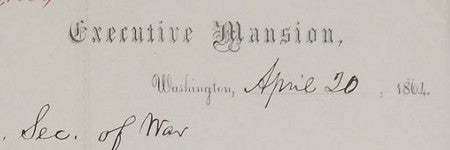 Executive Mansion,
Washington, April 20, 1864.
. Sec. of War